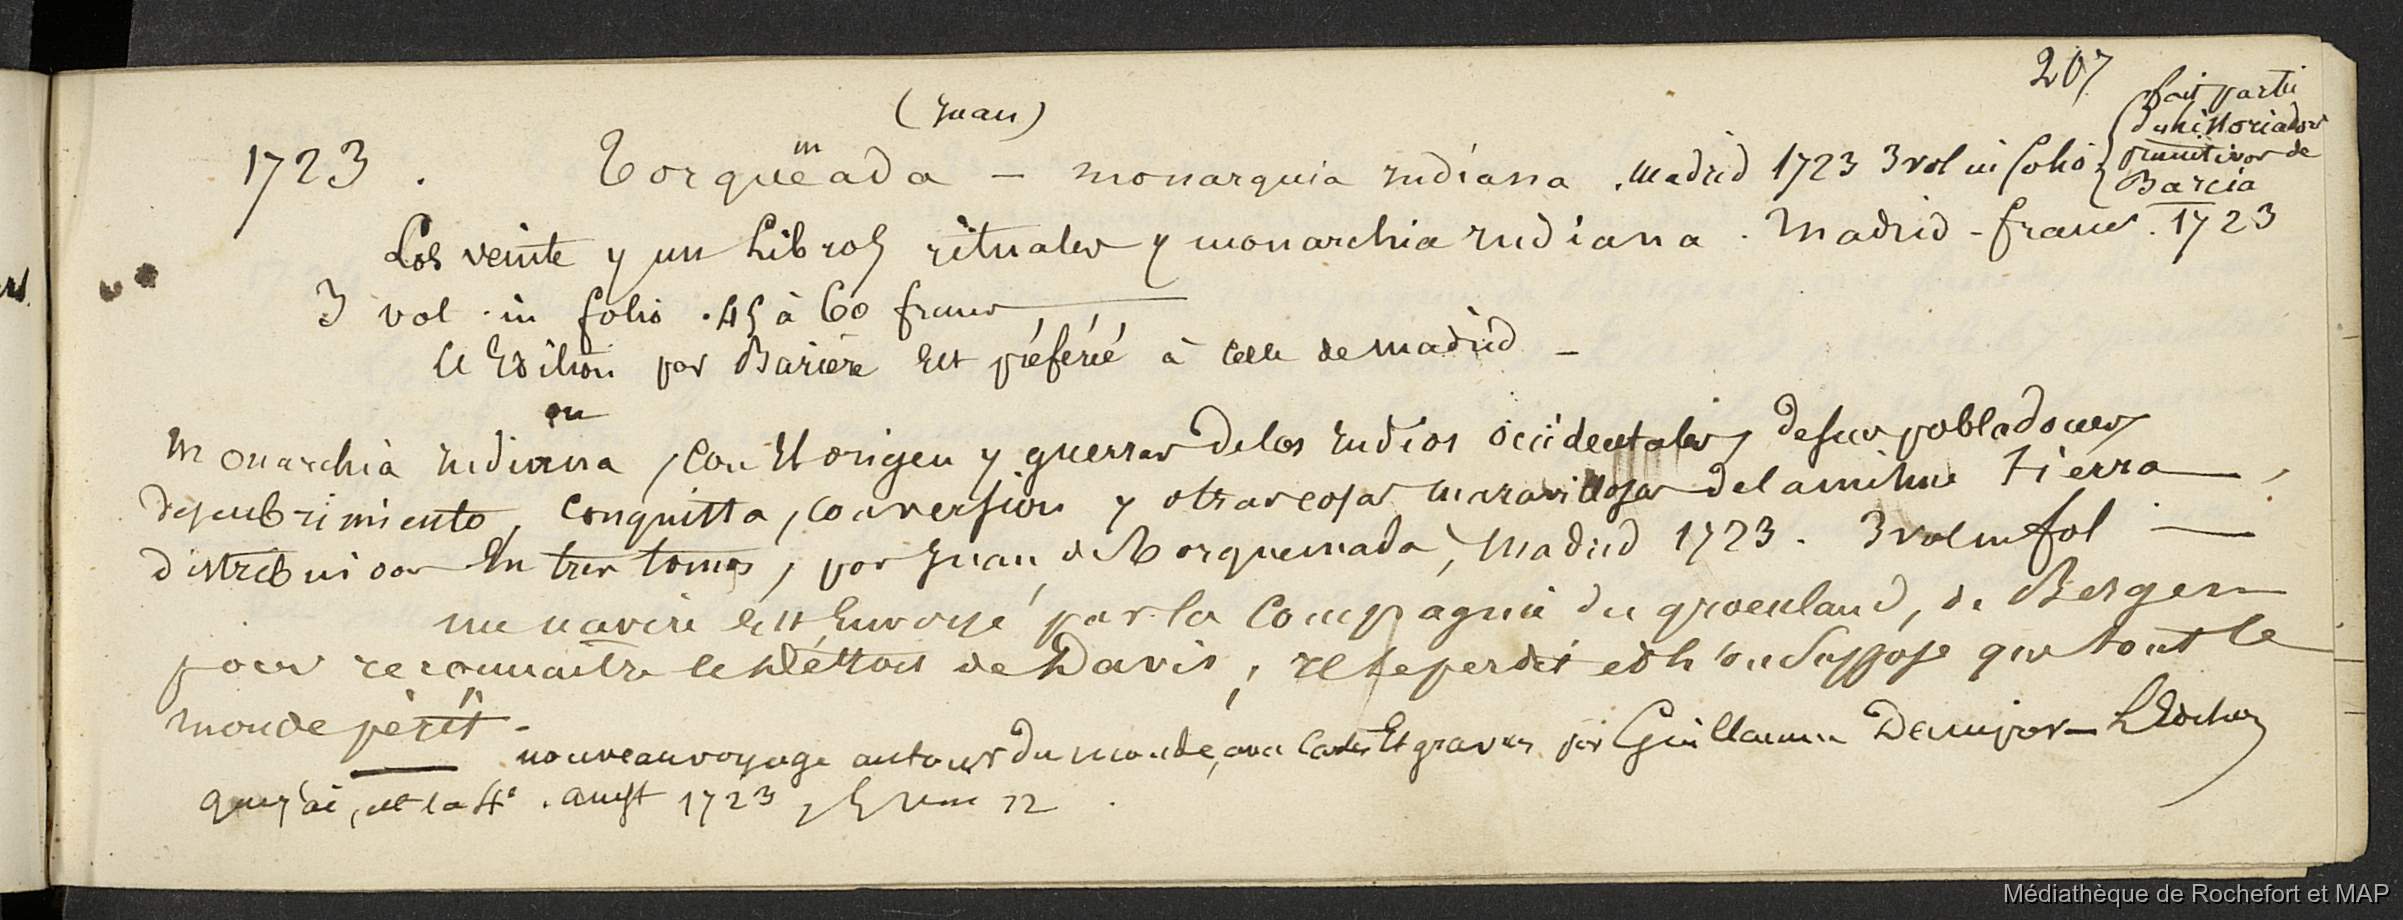 207
(Juan)
1723. Torquemada - monarquia indiana . Madrid 1723 3 vol in folio
fait partie
d'historiador
primitivos de
Barcia
Los veinte y un Libros rituales y monarchia indiana . Madrid - franco . 1723
3 vol . in folio . 45 à 60 francs
l'Edition par Bariere Est préferée à celle de Madrid -
ou
Monarchia indiana, con El origen y guerras de los Indios occidentales, de sus pobladores,
descubrimiento, conquista, conversion y otras cosas maravillosas de la misma tierra,
distribuidos En tres tomos, por Juan de Torquemada, Madrid 1723 . 3 vol in fol
un navire Est Envoyé par la compagnie du groenland, de Bergen
pour reconnaitre le Détroit de Davis, il se perdit et l'on suppose que tout le
monde périt .
nouveau voyage autour du monde, avec cartes Et gravures par Guillaume Dampier - L'Edition
que j'ai, est la 4e . amst 1723 , 5 vol in 12 .
Médiathèque de Rochefort et MAP